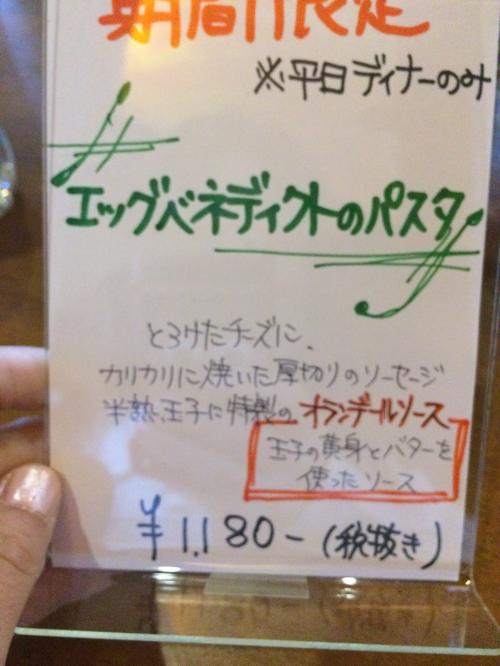 期間限定
※平日ディナーのみ
エッグベネディクトのパスタ
とろけたチーズに、
カリカリに焼いた厚切りのソーセージ
半熟玉子に特製のオランデールソース
玉子の黄身とバターを
使ったソース
¥1,180-(税抜き)